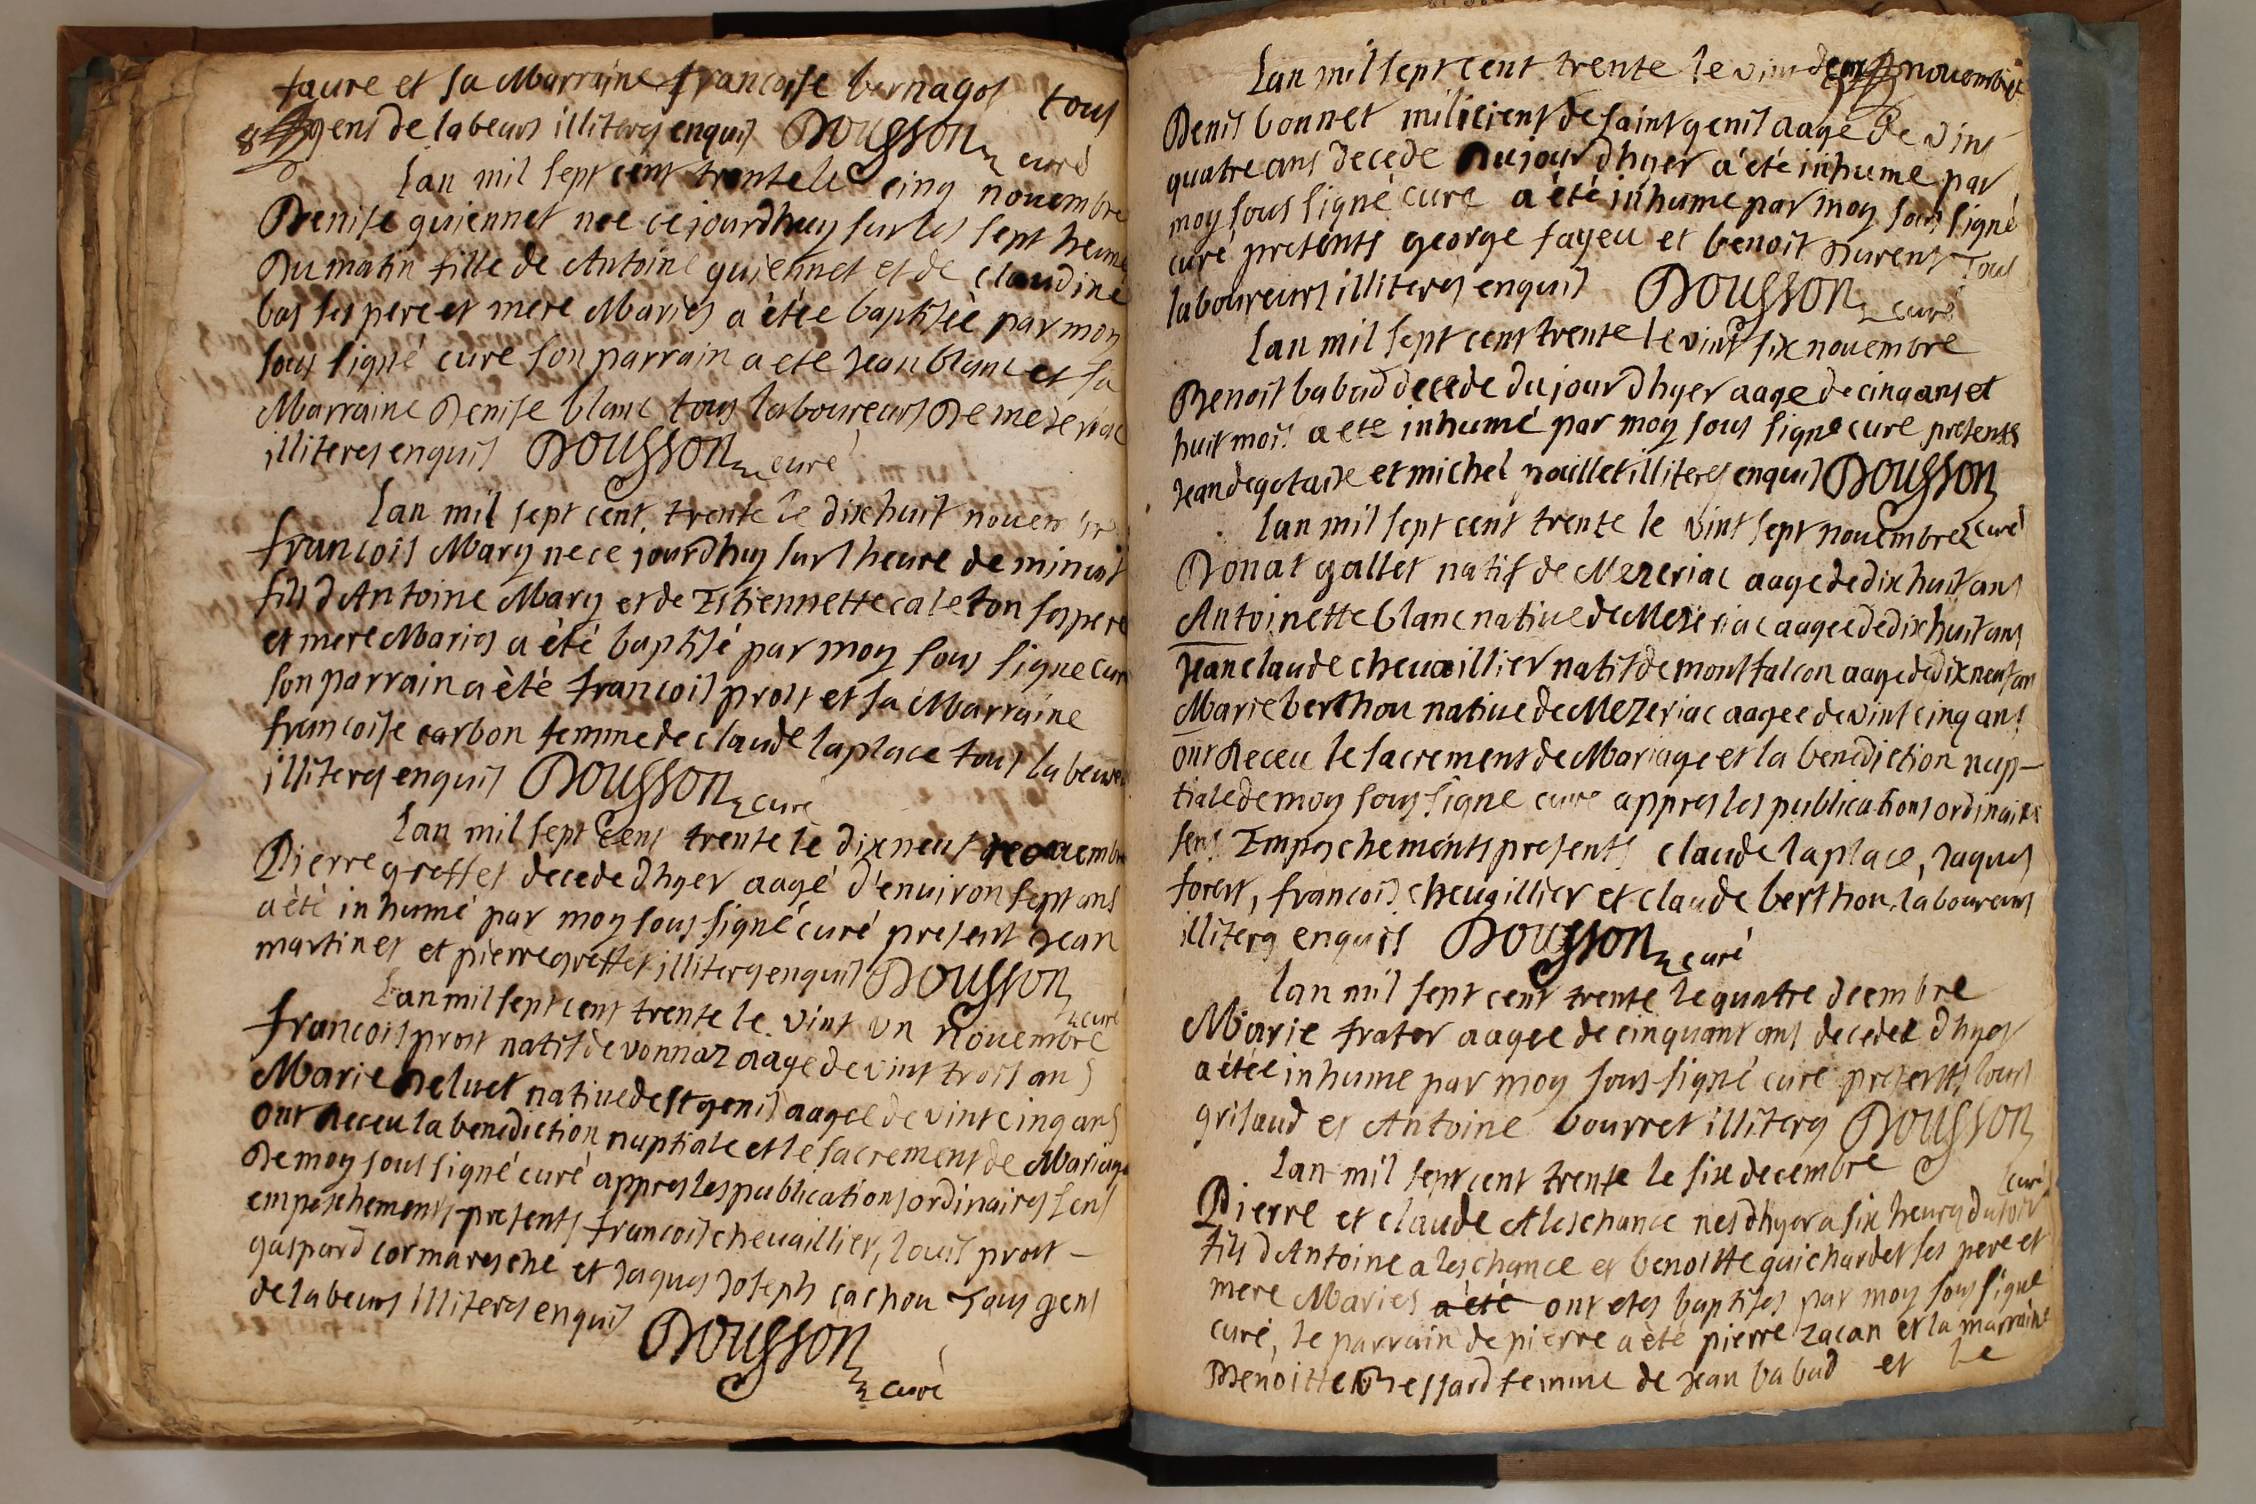 faure et sa Marraine francoise bernagos tous
gens de labeurs illiteres enquis Dousson curé
Lan mil sept cent trente le cinq nouembre
Denise guiennet nee cejourdhuy sur les sept heures
du matin fille de Antoine guiennet et de claudine
bas ses pere et mere Maries a étée baptisée par moy
sous signé curé son parrain a ete jean blanc et sa
Marraine Denise blanc tous laboureurs De mezeriac
illiteres enquis Dousson curé
Lan mil sept cent trente le dixhuit nouembre
francois Mary ne ce jourdhuy sur lheure de minuit
fils dAntoine Mary et de Estiennette caleton ses pere
et mere Maries a été baptisé par moy sous signe curé
son parrain a été francois prost et sa Marraine
francoise carbon femme de claude laplace tous labeurs
illiteres enquis Dousson curé
Lan mil sept cent trente le dixneuf nouembre
Pierre greffet decede dhyer aagé d'enuiron sept ans
a été inhumé par moy sous signé curé present jean
martinet et pierre greffet illiteres enquis Dousson
curé
Lan mil sept cent trente le vint un nouembre
francois prost natif de vonnaz aage de vint trois ans
Marie Deluet natiue de st genis aagee de vint cinq ans
ont Receu la benediction nuptiale et le sacrement de Mariage
De moy sous signé curé appres les publications ordinaires sens
empeschements presents francois cheuaillier, louis prost
gaspard cormaresche et jaques joseph cachou Tous gens
de labeurs illiteres enquis
Dousson
curé
Lan mil sept cent trente le vint deux nouembre
Denis bonnet milicient de saint genis aage de vint
quatre ans decede Du jour dhyer a été inhume par
moy sous signé curé a été inhume par moy sous signé
curé presents george fayeu et benoit Durent Tous
laboureurs illiteres enquis Dousson curé
Lan mil sept cent trente le vint six nouembre
Benoit babad decede du jour dhyer aage de cinq ans et
huit mois a ete inhumé par moy sous signe cure presents
jean degotaise et michel nouillet illiteres enquis Dousson
curé
Lan mil sept cent trente le vint sept nouembre
Donat gallet natif de Mezeriac aage de dix huit ans
Antoinette blanc natiue de Mezeriac aagee de dix huit ans
jean claude cheuaillier natif de montfalcon aage de dix neuf ans
Marie berthou natiue de Mezeriac aagee de vint cinq ans
ont Receu le sacrement de Mariage et la benediction nup-
tiale de moy sous signe cure appres les publications ordinaires
sens Empeschements presents claude laplace, jaques
forest, francois cheuaillier et claude berthou laboureurs
illiteres enquis Dousson curé
Lan mil sept cent trente le quatre decembre
Marie frater aagee de cinquant ans decedee dhyer
a étée inhume par moy sous signé curé presents louis
grisaud et Antoine bourret illiteres Dousson
curé
Lan mil sept cent trente le six decembre
Pierre et claude Aleschance nes dhyer a six heures du soir
fils dAntoine aleschance et benoitte guichardet ses pere et
mere Maries a été ont etes baptises par moy sous signe
curé, le parrain de pierre a été pierre Zacan et la marraine
Benoitte Bressard femme de jean babad et le